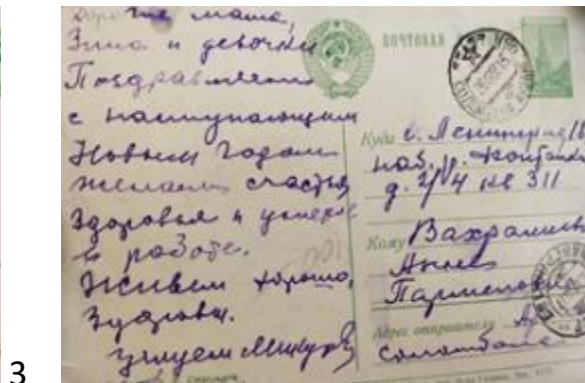 Дорогие мама,
Зина и девочки
Поздравляем
с наступающим
Новым Годом
желаем счастья
здоровья и успехов
в работе.
Живем хорошо,
здоровы.
целуем
ПОЧТОВАЯ
Куда г. Ленинград
наб. р. Фонтанки
д. 2/4 кв 311
Кому
Анне
Адрес отправителя
Соломбала
3